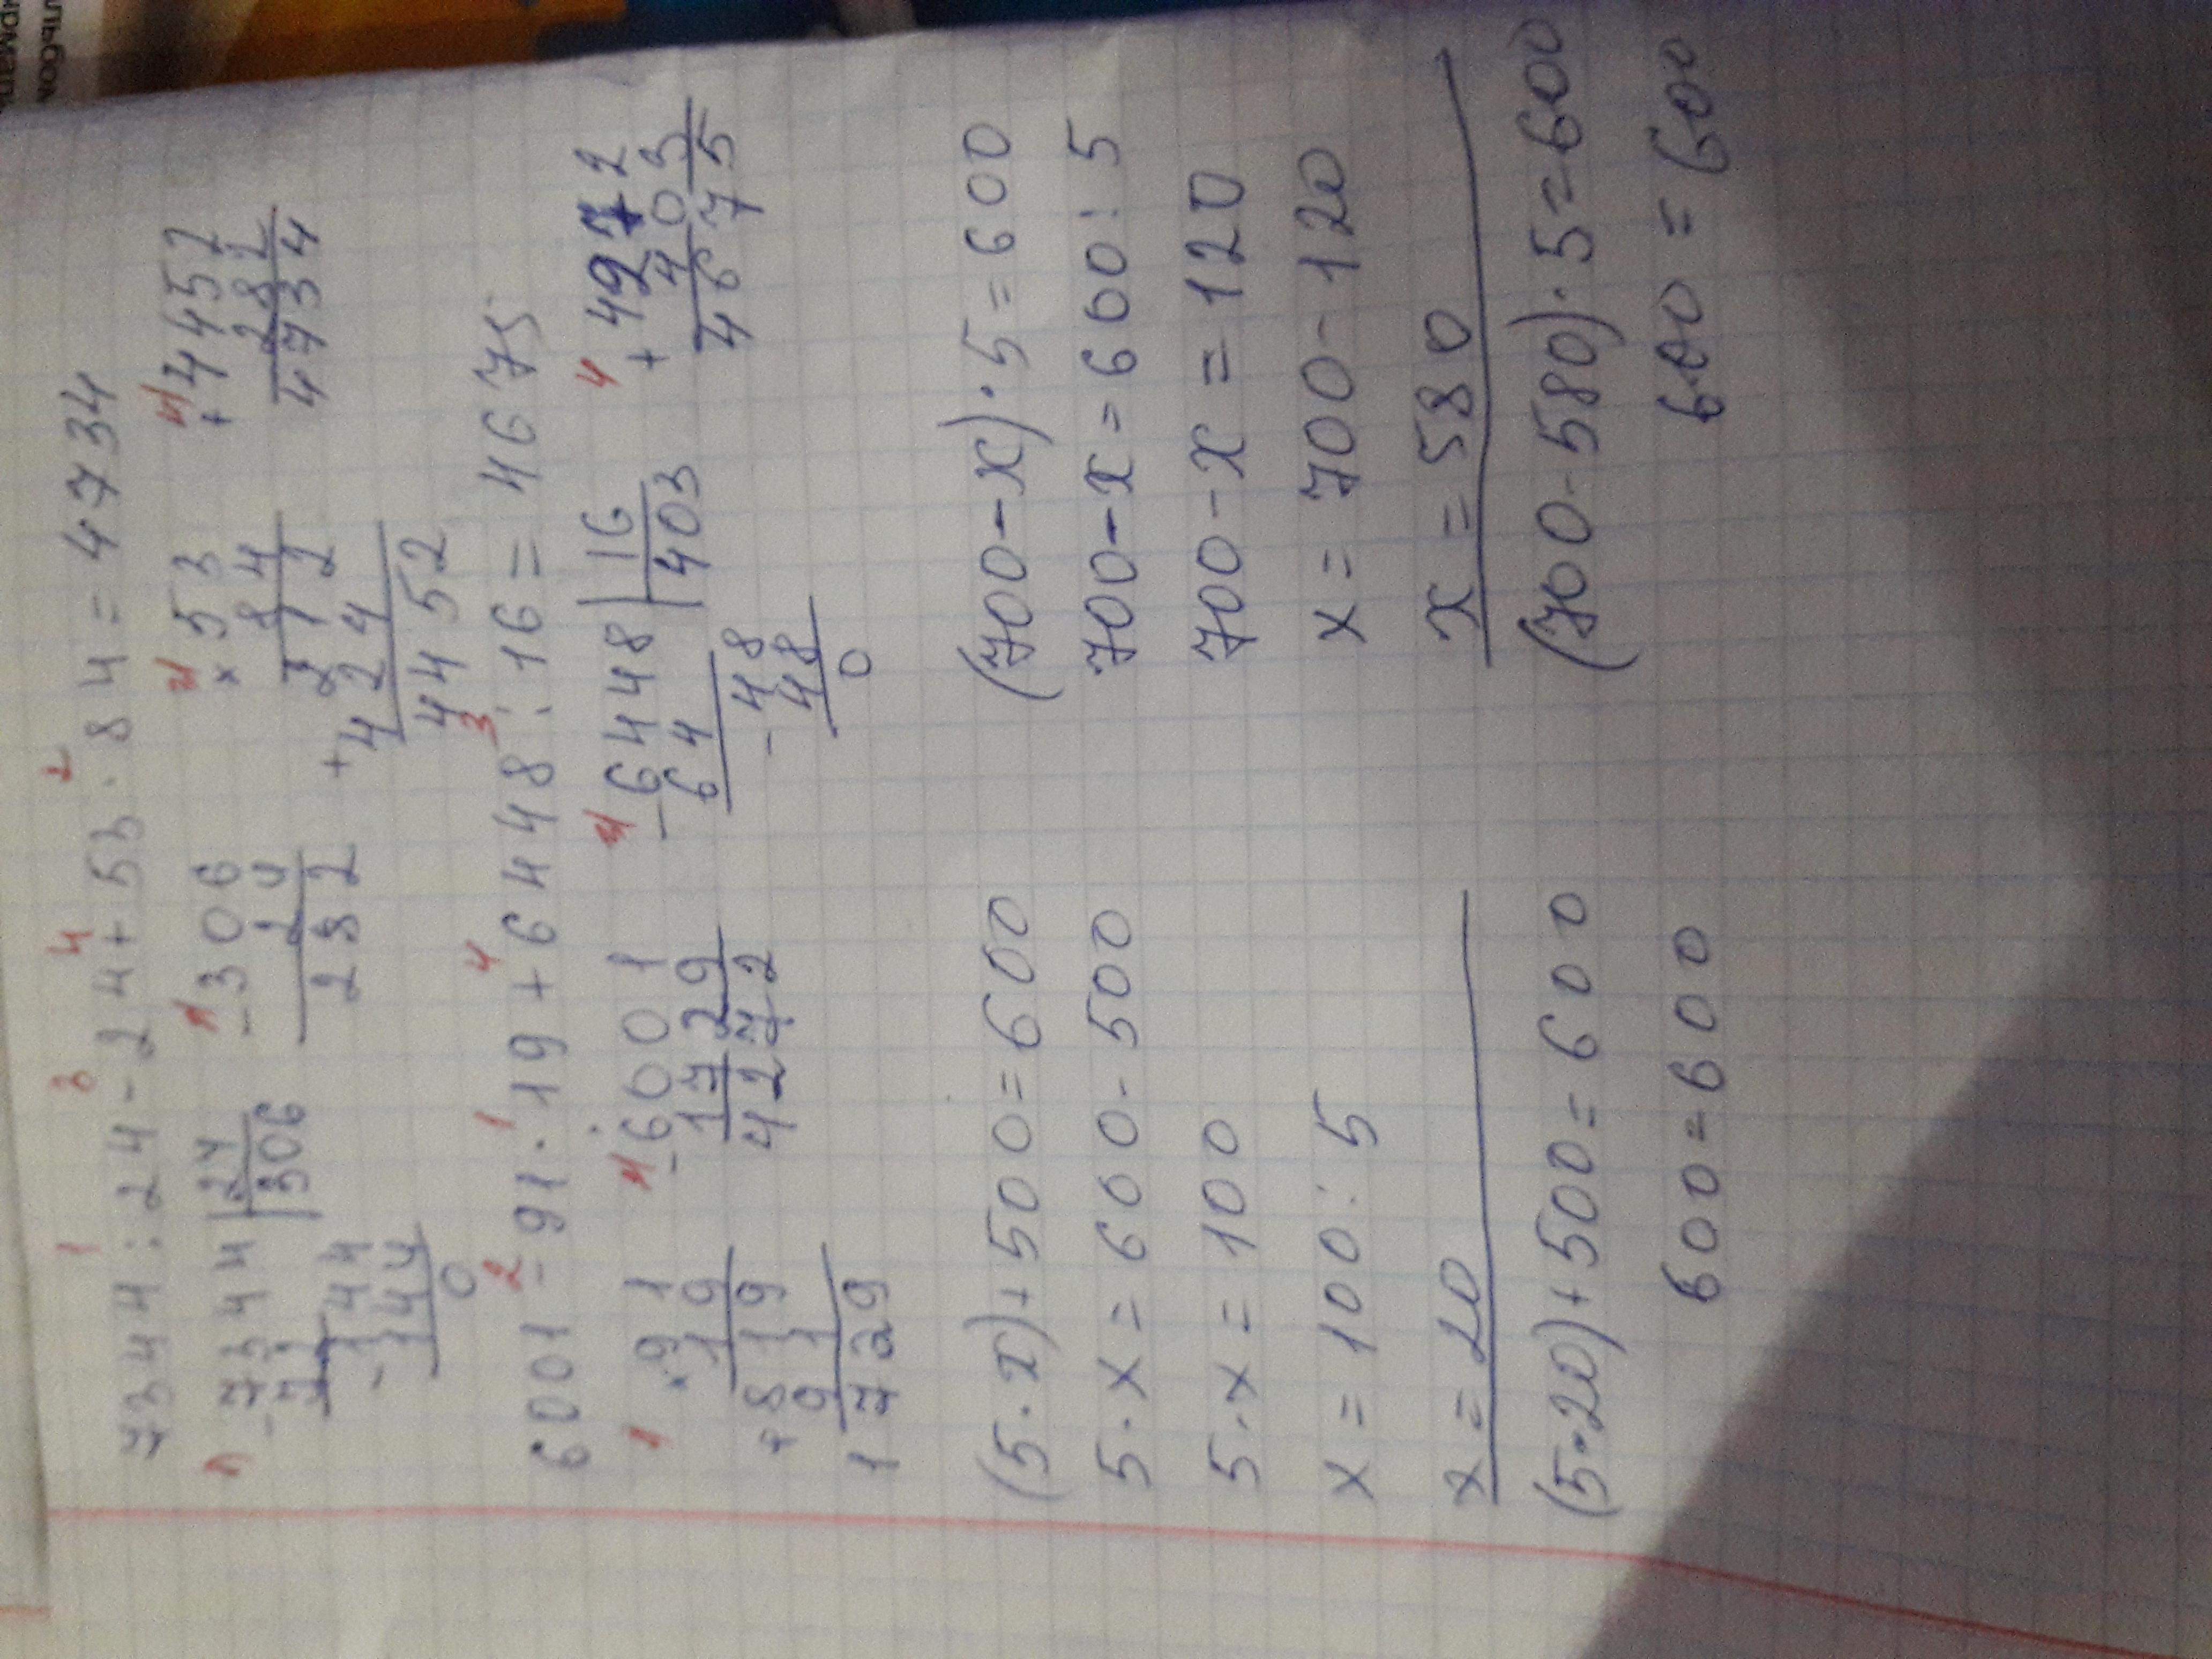 7344 : 24 - 24 + 53 · 84 = 4734
1 3 4 2
1) 7344 | 24
72 | 306
144
- 144
0
2) 53
× 84
212
+ 424
4452
3) - 306
24
282
4) + 4452
282
4734
6001 - 91 · 19 + 6448 : 16 = 4675
2 1 4 3
1 91
× 19
+ 819
91
1729
2) - 6001
1729
4272
3) - 6448 | 16
64 | 403
- 48
48
0
4 + 4272
403
4675
(5 · x) + 500 = 600
5 · x = 600 - 500
5 · x = 100
x = 100 : 5
x = 20
(5 · 20) + 500 = 600
600 = 600
(700 - x) · 5 = 600
700 - x = 600 : 5
700 - x = 120
x = 700 - 120
x = 580
(700 - 580) · 5 = 600
600 = 600